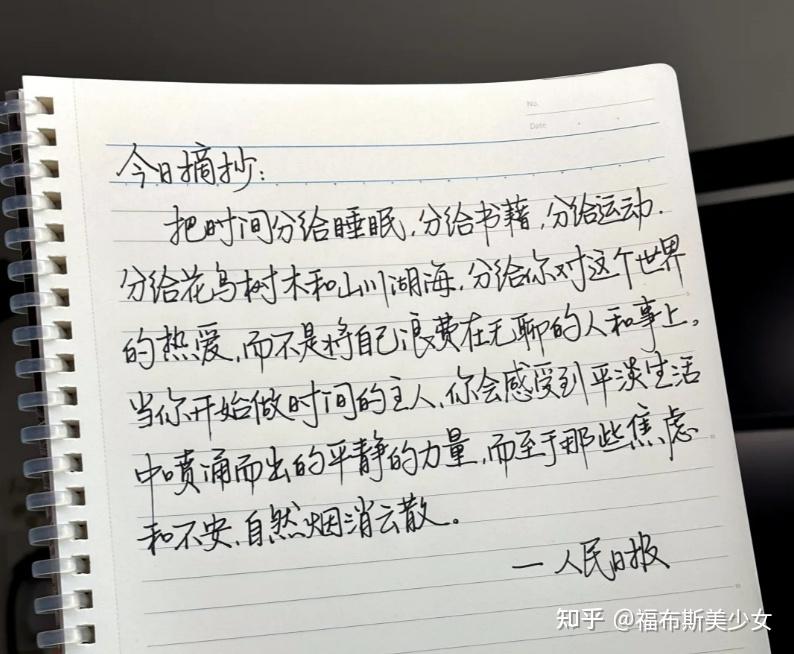 No.
Date
今日摘抄：
把时间分给睡眠，分给书籍，分给运动，
分给花鸟树木和山川湖海，分给你对这个世界
的热爱，而不是将自己浪费在无聊的人和事上。
当你开始做时间的主人，你会感受到平淡生活
中喷涌而出的平静的力量，而至于那些焦虑
和不安，自然烟消云散。
— 人民日报
知乎 @福布斯美少女